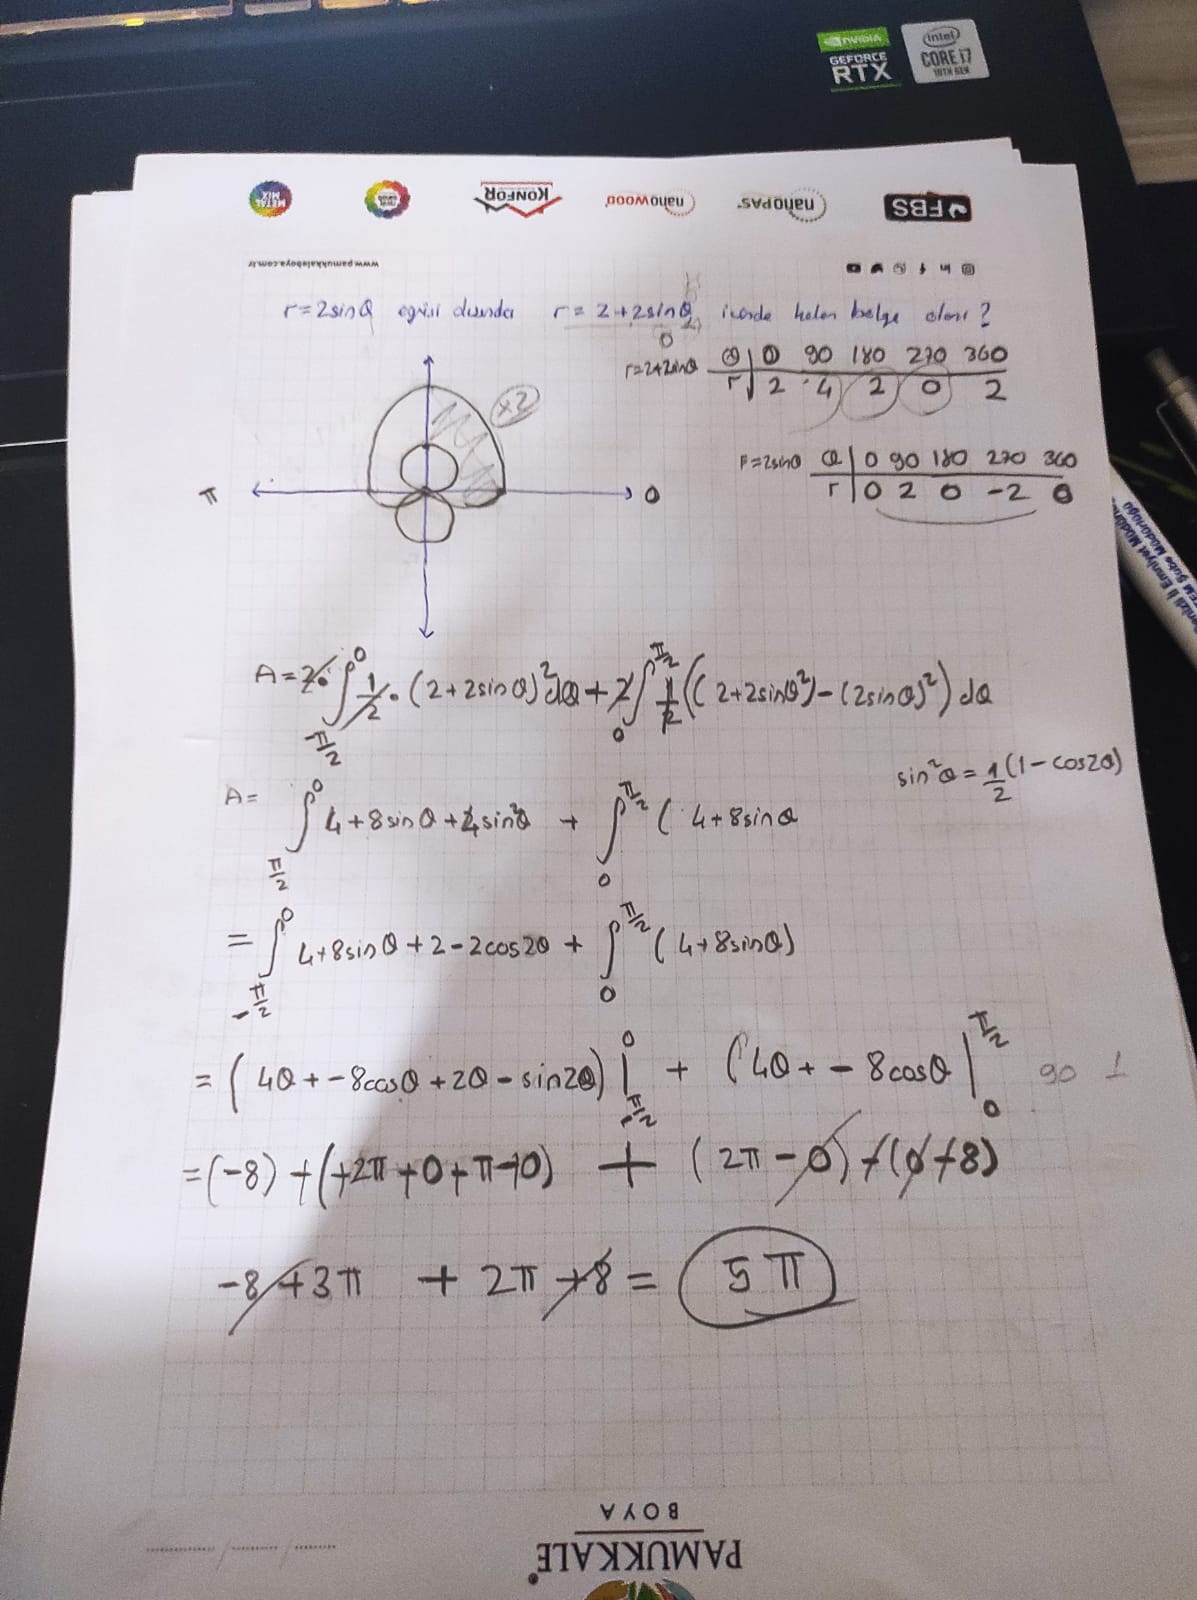 NVIDIA
GEFORCE
RTX
intel
CORE i7
10TH GEN
METAL MIX
KONFOR
nanowood
nanoPAS
FBS
www.pamukkaleboya.com.tr
r=2sinθ eğrisi dışında r=2+2sinθ içinde kalan bölge alanı?
r=2+2sinθ θ 0 90 180 270 360
r 2 4 2 0 2
x2
r=2sinθ θ 0 90 180 270 360
r 0 2 0 -2 0
π 0
A=2·∫_{-π/2}^{0} 1/2·(2+2sinθ)²dθ+2∫_{0}^{π/2} 1/2((2+2sinθ²)-(2sinθ)²)dθ
sin²θ=1/2(1-cos2θ)
A= ∫_{π/2}^{0} 4+8sinθ+4sin²θ + ∫_{0}^{π/2} (4+8sinθ
= ∫_{-π/2}^{0} 4+8sinθ+2-2cos2θ + ∫_{0}^{π/2} (4+8sinθ)
= (4θ+-8cosθ+2θ-sin2θ)|_{-π/2}^{0} + (4θ+-8cosθ|_{0}^{π/2} 90 1
=(-8)+(+2π+0+π+0) + (2π-0)+(0+8)
-8+3π + 2π+8= 5π
BOYA
PAMUKKALE